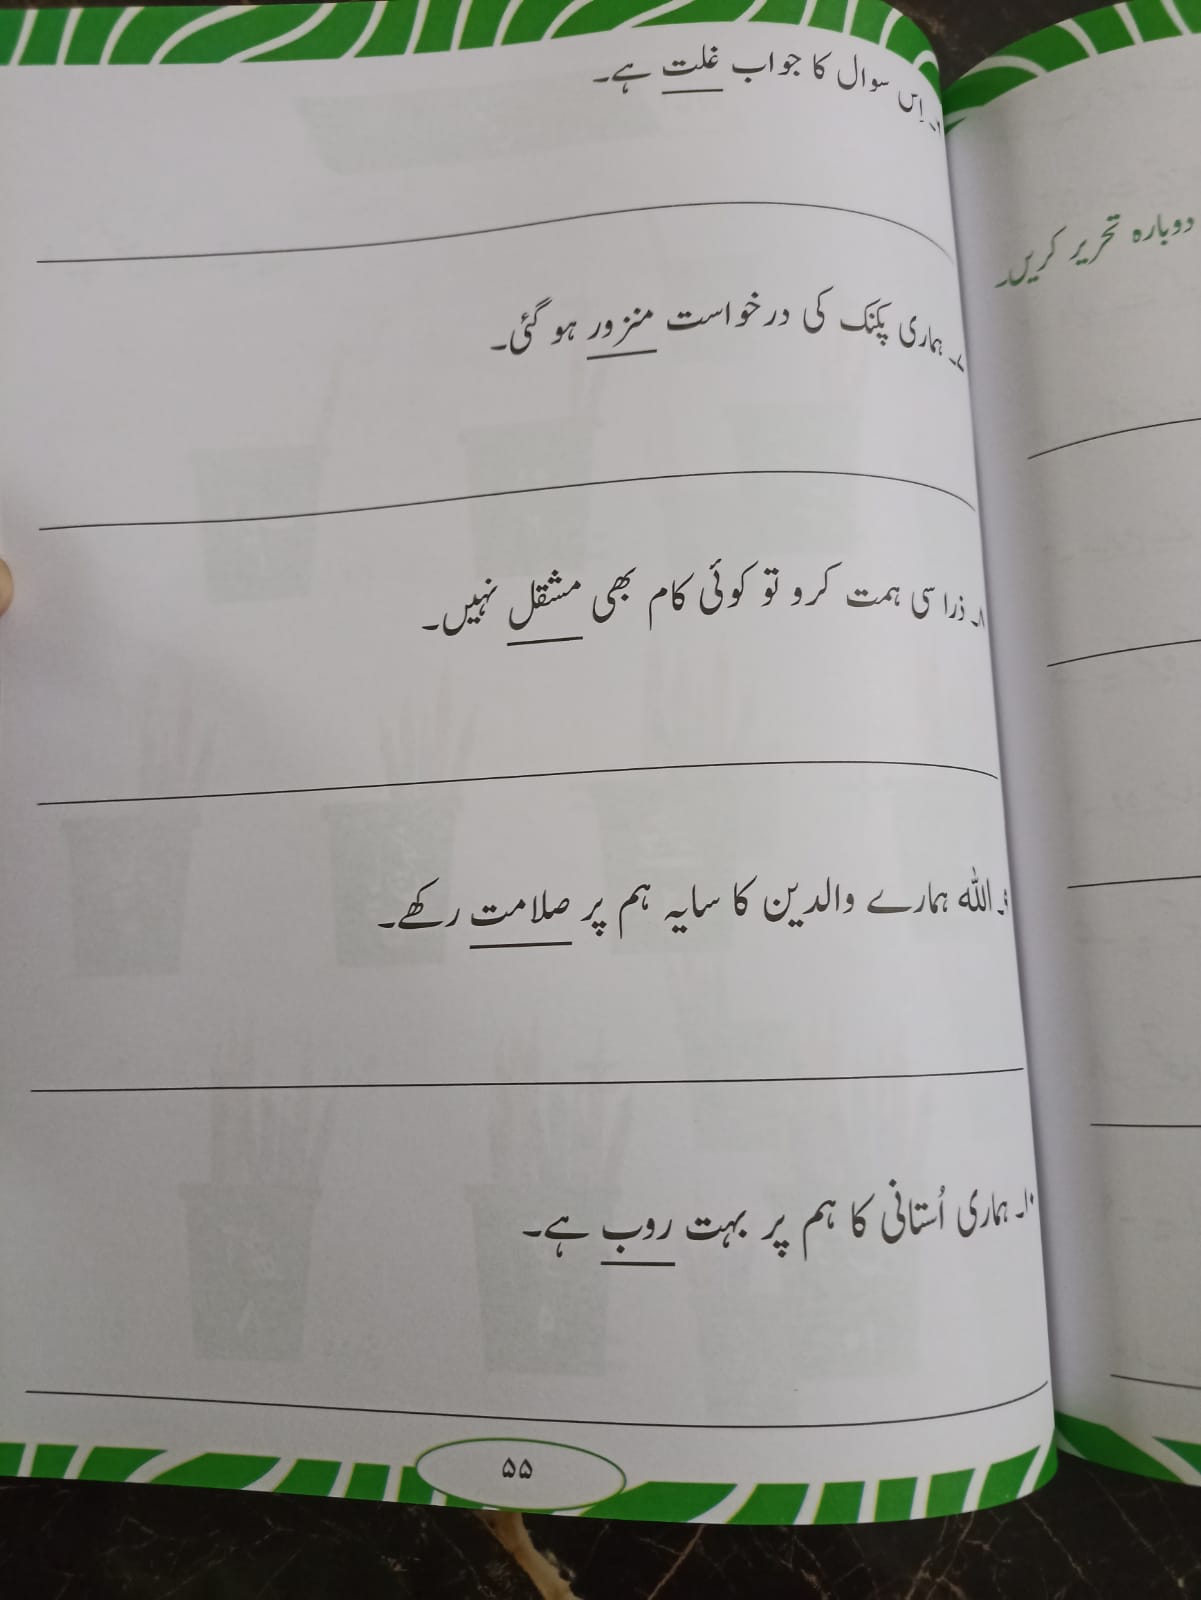 ۶۔ اِس سوال کا جواب غلت ہے۔
۷۔ ہماری پکنک کی درخواست منزور ہو گئی۔
۸۔ ذرا سی ہمت کرو تو کوئی کام بھی مشقل نہیں۔
۹۔ اللہ ہمارے والدین کا سایہ ہم پر صلامت رکھے۔
۱۰۔ ہماری اُستانی کا ہم پر بہت روب ہے۔
۵۵
دوبارہ تحریر کریں۔